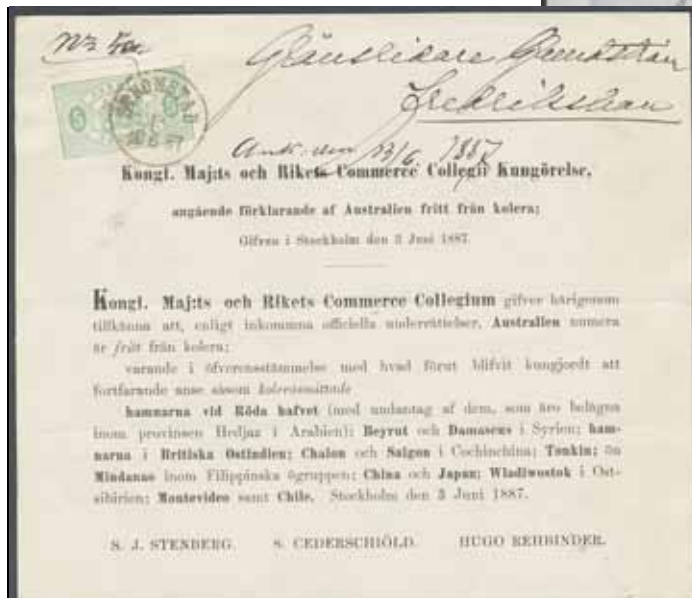 Fredrikshan
Ank. den 13/6 1887
Kongl. Maj:ts och Rikets Commerce Collegii Kungörelse,
angående förklarande af Australien fritt från kolera;
Gifven i Stockholm den 3 Juni 1887.
Kongl. Maj:ts och Rikets Commerce Collegium gifver härigenom
tillkänna att, enligt inkomna officiella underrättelser, Australien numera
är fritt från kolera;
varande i öfverensstämmelse med hvad förut blifvit kungjordt att
fortfarande anse såsom kolerasmittade
hamnarna vid Röda hafvet (med undantag af dem, som äro belägna
inom provinsen Hedjaz i Arabien); Beyrut och Damascus i Syrien; ham-
narna i Britiska Ostindien; Chalon och Saigon i Cochinchina; Tonkin; ön
Mindanao inom Filippinska ögruppen; China och Japan; Wladiwostok i Ost-
sibirien; Montevideo samt Chile. Stockholm den 3 Juni 1887.
S. J. STENBERG. S. CEDERSCHIÖLD. HUGO REHBINDER.